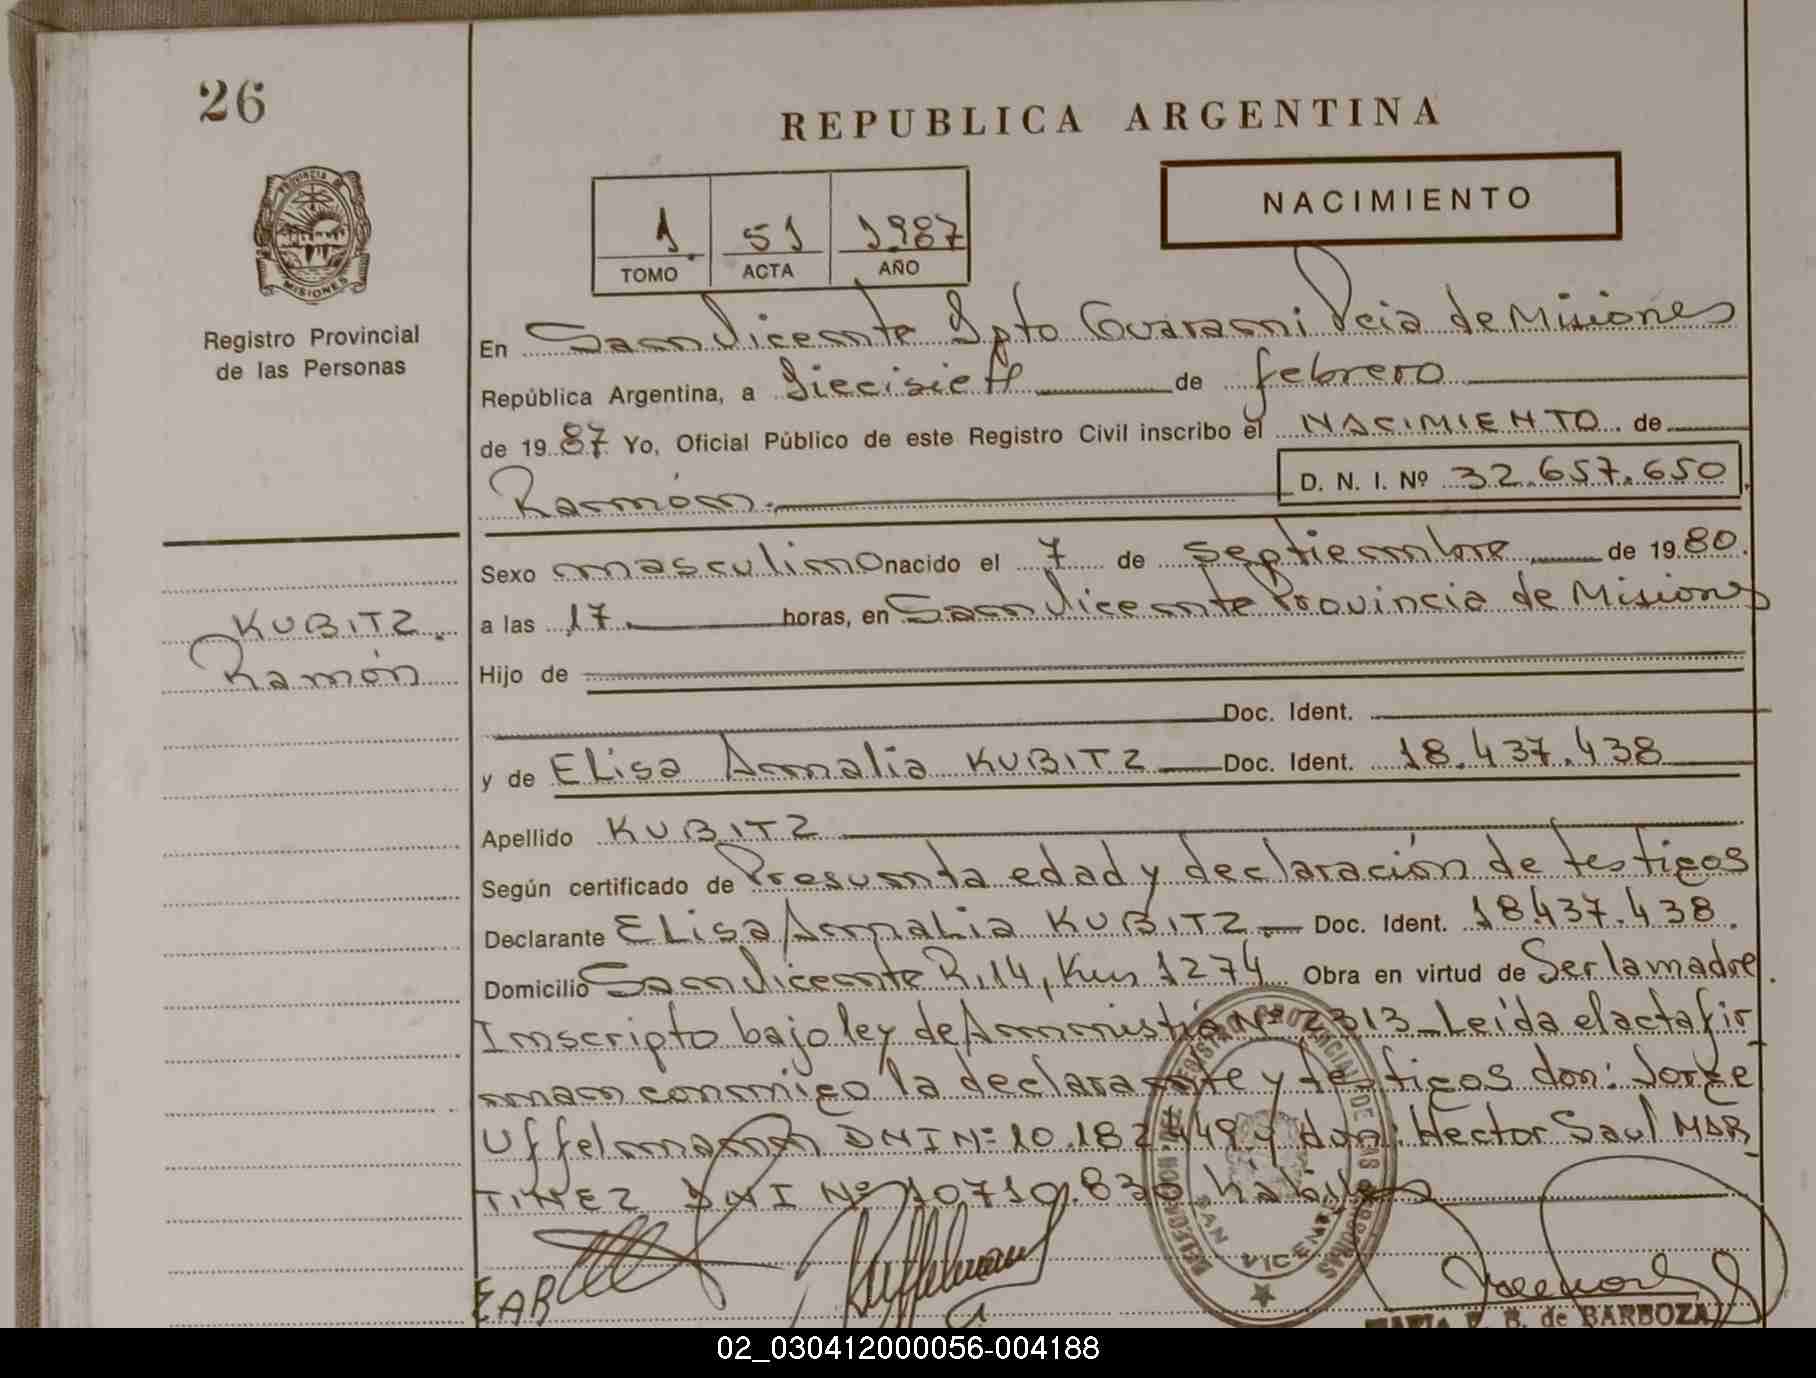 26
REPUBLICA ARGENTINA
NACIMIENTO
1 51 1987
TOMO ACTA AÑO
PROVINCIA DE MISIONES
Registro Provincial
de las Personas
En San Vicente Dpto Guarani Pcia de Misiones
República Argentina, a Diecisiete de febrero
de 1987 Yo, Oficial Público de este Registro Civil inscribo el NACIMIENTO de
Ramón. D. N. I. Nº 32.657.650
Sexo masculino nacido el 7 de septiembre de 1980.
KUBITZ.
Ramón
a las 17 horas, en San Vicente Provincia de Misiones
Hijo de
Doc. Ident.
y de ELisa Amalia KUBITZ Doc. Ident. 18.437.438
Apellido KUBITZ
Según certificado de Presunta edad y declaración de testigos
Declarante ELisa AmaLia KUBITZ Doc. Ident. 18.437.438.
Domicilio San Vicente R.14, Km 1274 Obra en virtud de Ser la madre.
Inscripto bajo ley de Amnistía Nº 2313_Leída el acta fir
man conmigo la declarante y testigos don: Jorge
Uffelmann DNI Nº 10.182.449 y don: Hector Saul MAR
TINEZ DNI Nº 10710.830 hábiles
EAB
SAN VICENTE
B. de BARBOZA
02_030412000056-004188